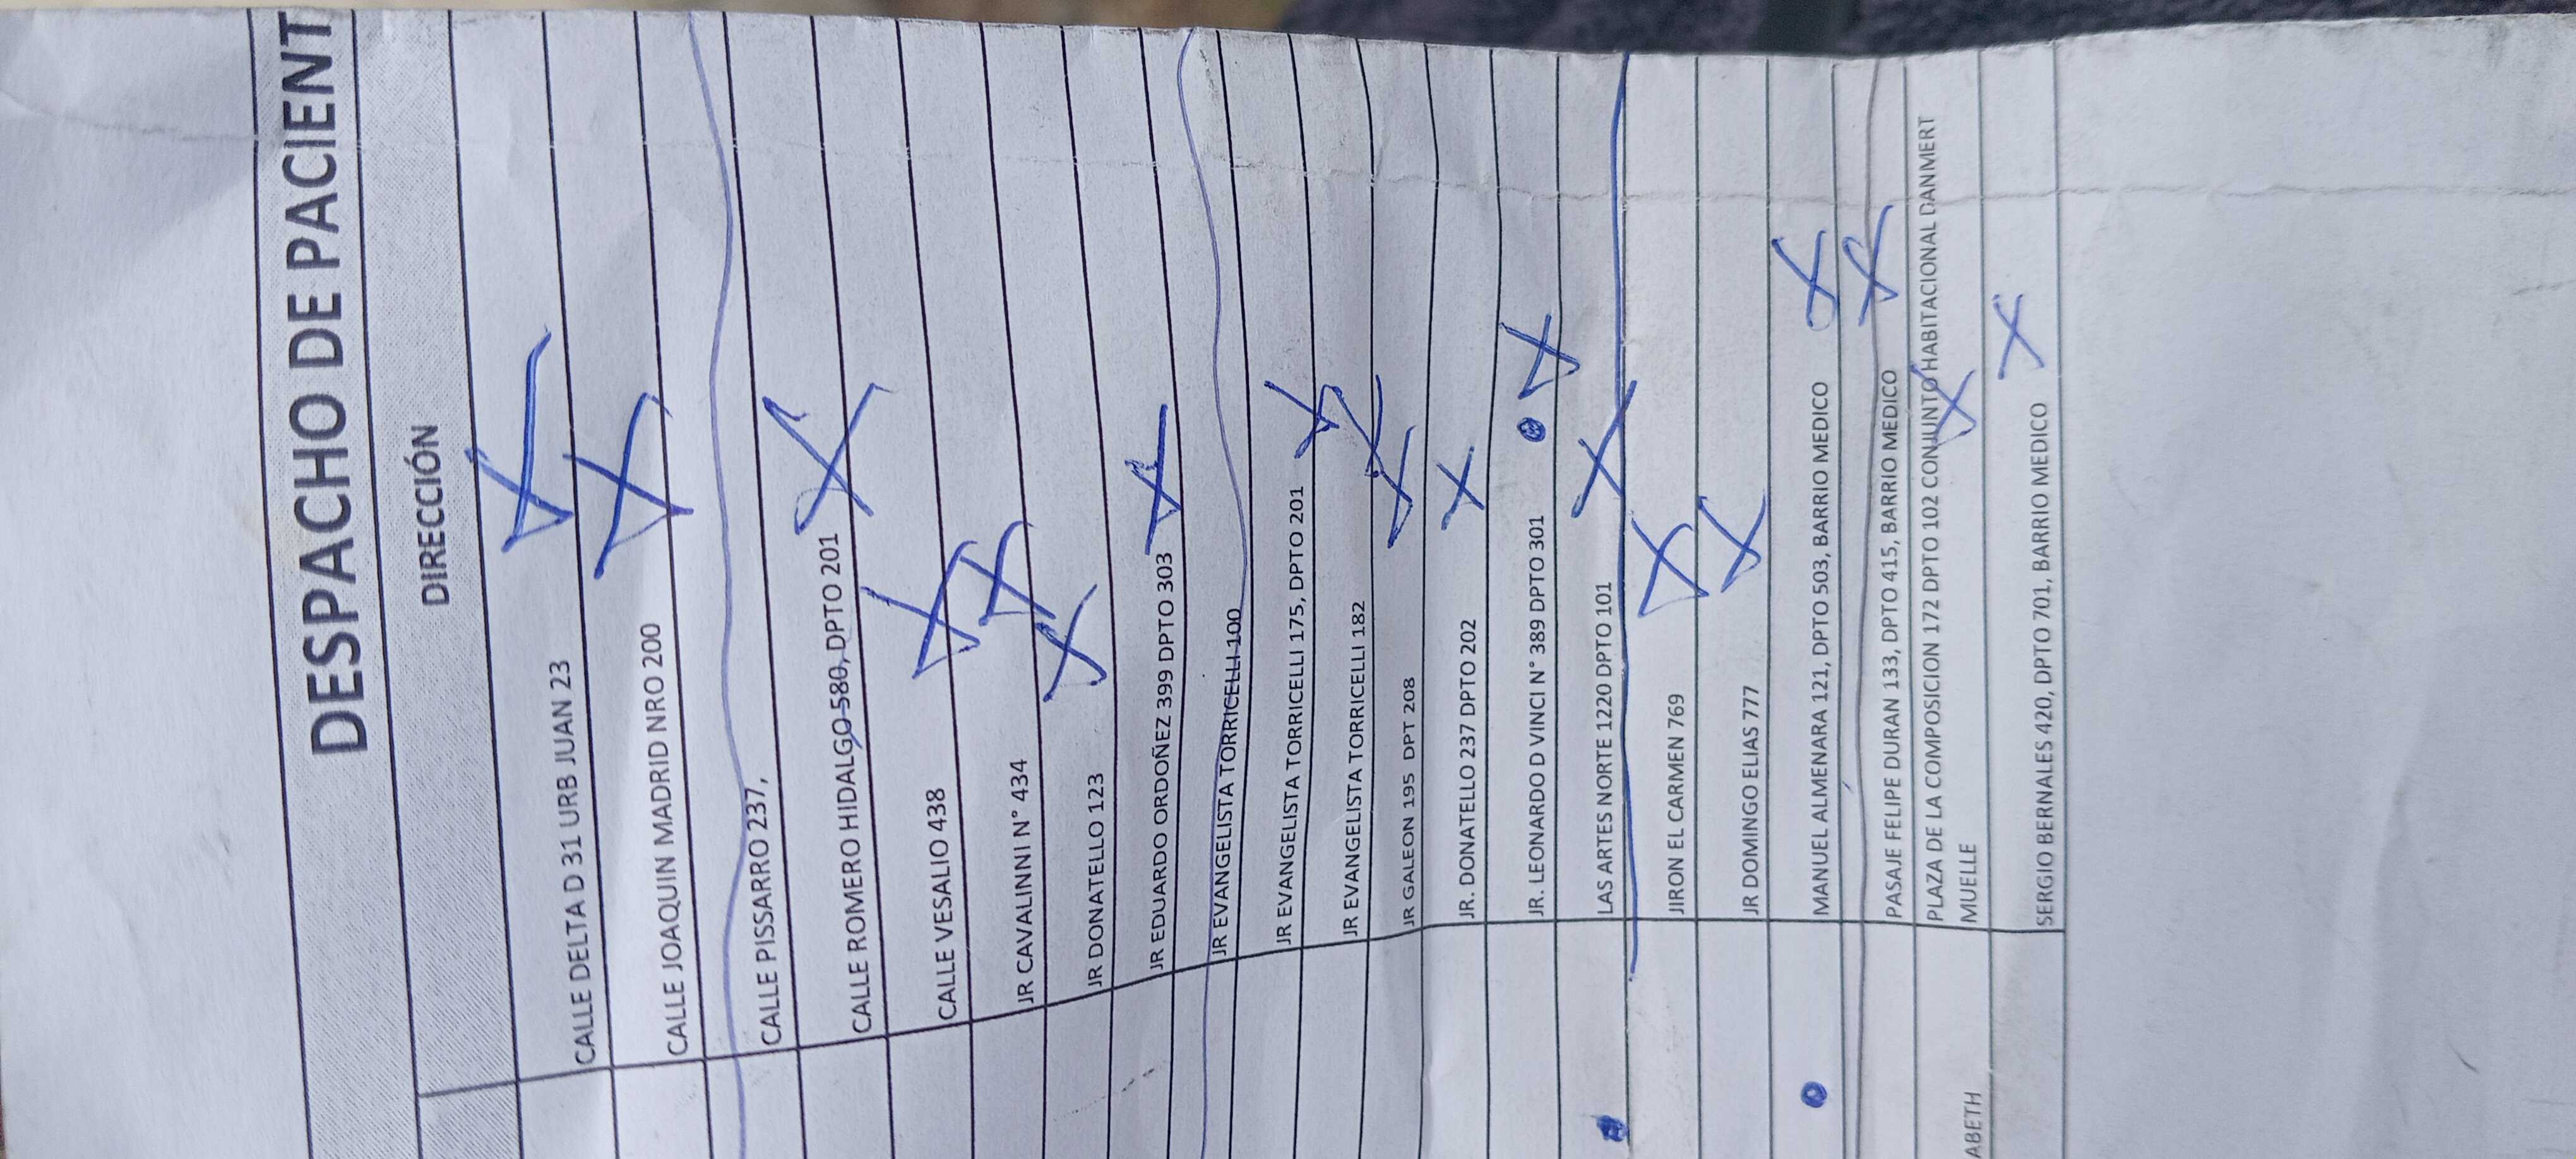 DESPACHO DE PACIENT
DIRECCIÓN
CALLE DELTA D 31 URB JUAN 23
CALLE JOAQUIN MADRID NRO 200
CALLE PISSARRO 237,
CALLE ROMERO HIDALGO 580, DPTO 201
CALLE VESALIO 438
JR CAVALINNI N° 434
JR DONATELLO 123
JR EDUARDO ORDOÑEZ 399 DPTO 303
JR EVANGELISTA TORRICELLI 100
JR EVANGELISTA TORRICELLI 175, DPTO 201
JR EVANGELISTA TORRICELLI 182
JR GALEON 195 DPT 208
JR. DONATELLO 237 DPTO 202
JR. LEONARDO D VINCI N° 389 DPTO 301
LAS ARTES NORTE 1220 DPTO 101
JIRON EL CARMEN 769
JR DOMINGO ELIAS 777
MANUEL ALMENARA 121, DPTO 503, BARRIO MEDICO
PASAJE FELIPE DURAN 133, DPTO 415, BARRIO MEDICO
PLAZA DE LA COMPOSICION 172 DPTO 102 CONJUNTO HABITACIONAL DANMERT
ABETH MUELLE
SERGIO BERNALES 420, DPTO 701, BARRIO MEDICO